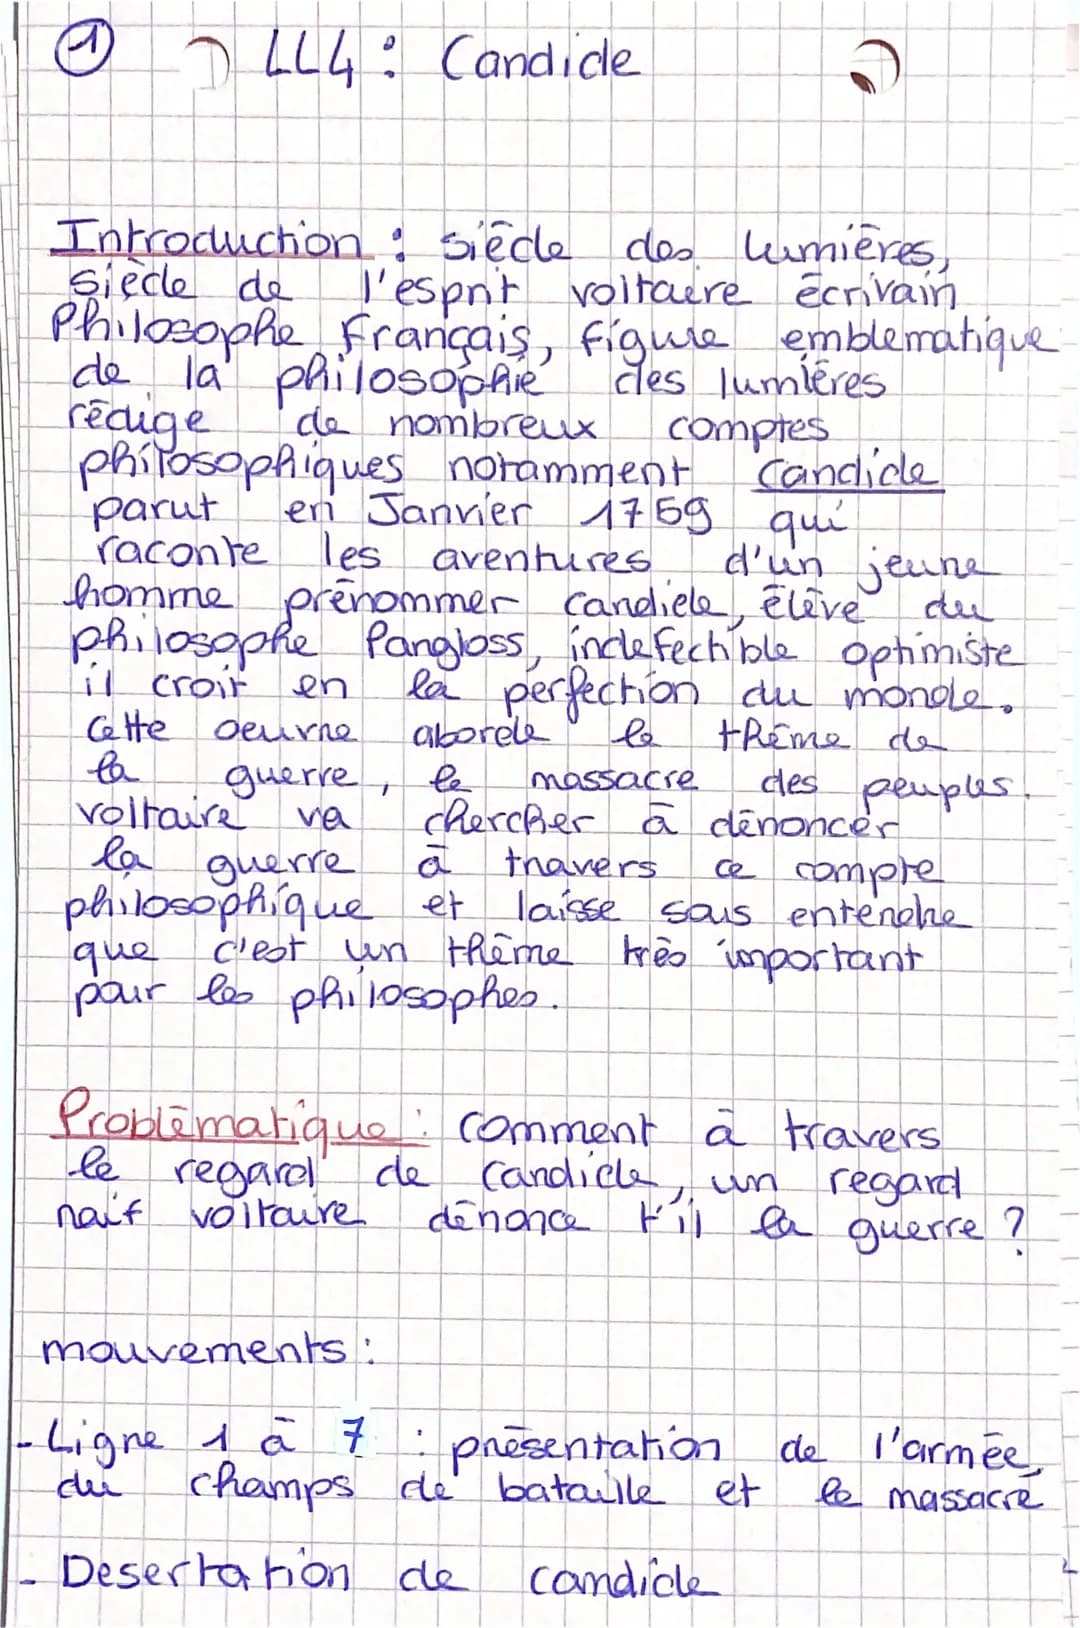 1 LL4 : Candide
Introduction : siècle des lumières,
siècle de l'esprit voltaire écrivain
Philosophe Français, figure emblematique
de la philosophie des lumières
rédige de nombreux comptes
philosophiques notamment Candide
parut en Janvier 1759 qui
raconte les aventures d'un jeune
homme prénommer Candide, élève du
philosophe Pangloss, indefectible optimiste
il croit en la perfection du monde.
Cette oeuvre aborde le thème de
la guerre, le massacre des peuples.
voltaire va chercher à dénoncer
la guerre à travers ce compte
philosophique et laisse sous entendre
que c'est un thème très important
pour les philosophes.
Problématique : Comment à travers
le regard de Candide, un regard
naïf voltaire dénonce t'il la guerre ?
mouvements :
- Ligne 1 à 7 : présentation de l'armée,
du champs de bataille et le massacre
- Desertation de Candide